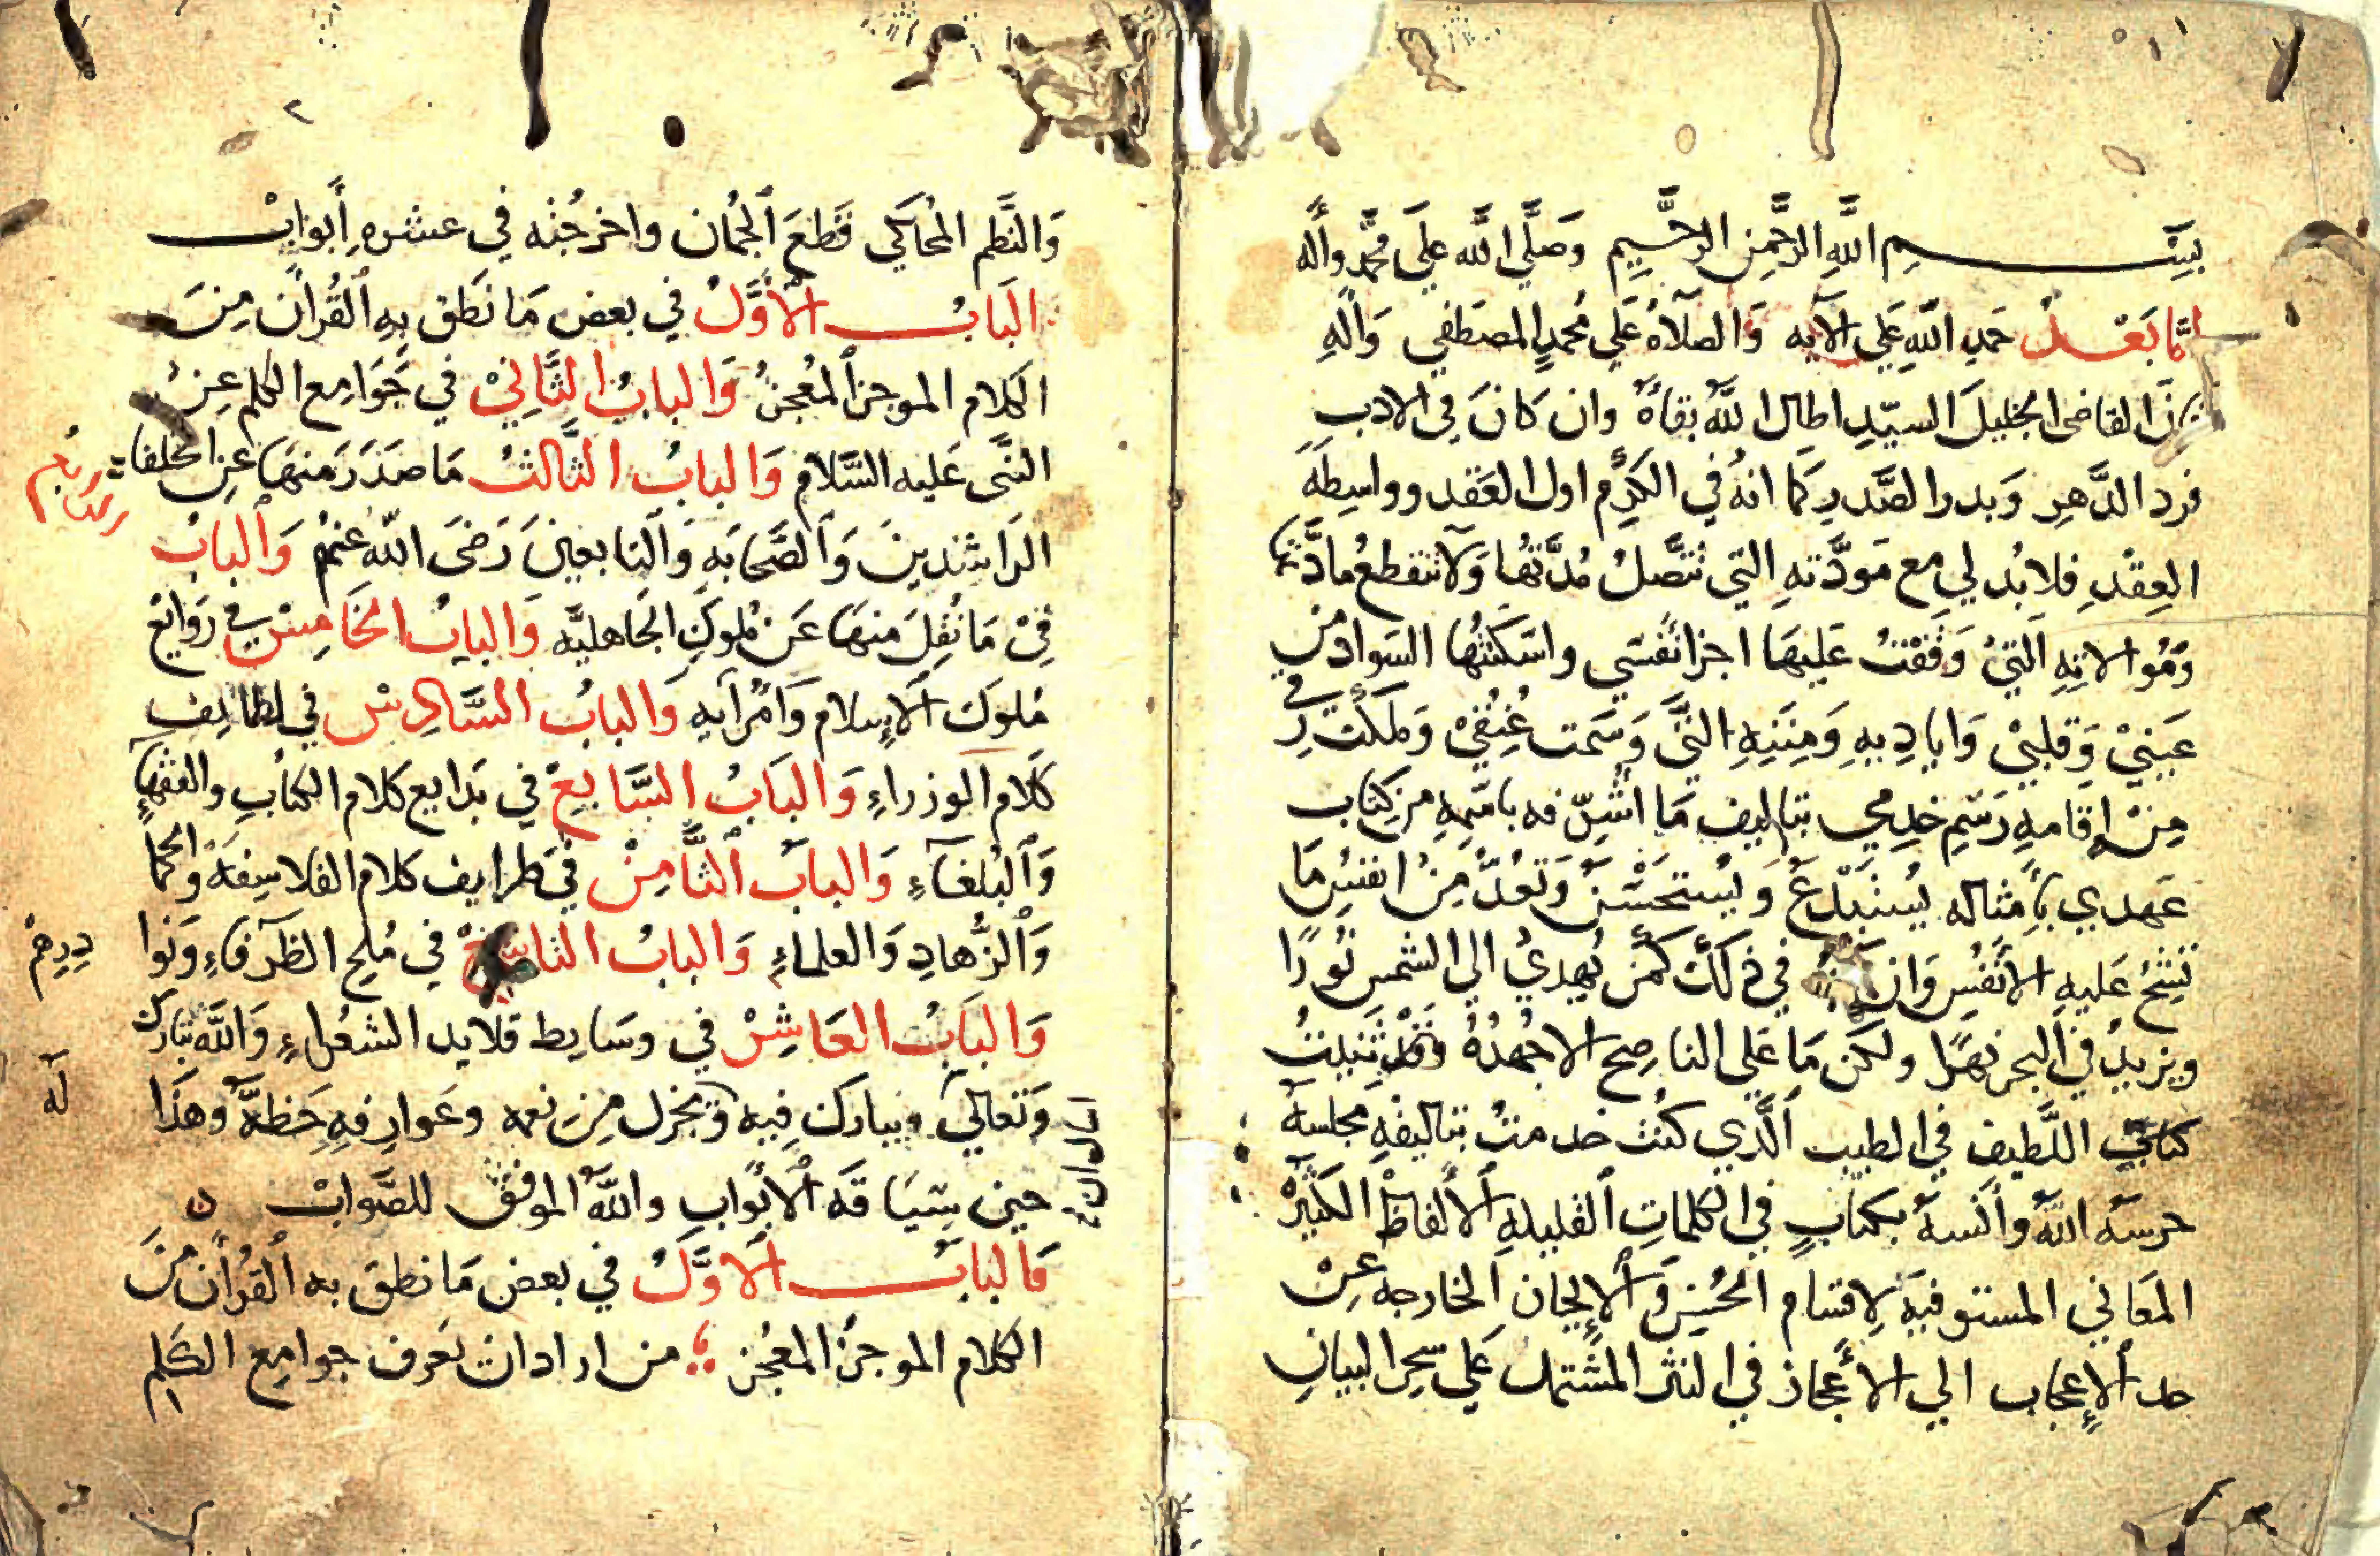 بِسْمِ اللَّهِ الرَّحْمنِ الرَّحِيمِ وَصَلَّى الله عَلَى مُحَمَّد وآله
امَّا بَعْدُ حَمْدِ اللهِ عَلَى آلآيه وَالصلاة عَلى مُحمدٍ المصطفى وَآلهِ
القاضى الجليلَ السيّدِ اطال اللهُ بقاهُ وان كَانَ فى الادب
فرد الدَّهرِ وَبدر الصَّدرِ كما انهُ في الكَرِم اول العَقد وواسِطه
العِقْدِ فلابُد لي مع مَودَّتهِ التي تتَّصلُ مُدَّتُها وَلا تنقطعُ مادَّتها
وَمُوالاتِهِ اَلتيْ وَقَفْتُ عَليهَا اجزا نفسَي واسَكَنتُها السَواد من
عَينيْ وَقلبيْ وَاياديهِ وَمِننِهِ التيَّ وَسَمت عُنُقيْ وَملَكَتْ رِقي
مِنْ إِقامهِ رَسْمِ خدمتي بتاليف مَا اشرّفه باسَمِهِ من كِتاب
عَهدي بأَمثاله يُستبْدَعُ وَيُستحَسَنُ وَتُعدُّ مِنْ انفسُ مَا
تشِحُ عَليهِ الأنفُس وَان كنتُ في ذلكَ كمَن يُهديُ الى الشمس نُورًا
ويزيدُ في البحر نهرًا ولكن مَا عَلى الناصِح الا جُهدُهُ وَقد ثنيتُ
كتابيَ اللَّطيف في الطيب ألَّذي كنُت خدمتُ بتاليفهِ مجلسهَ
حرسَه اللهُ وآنسهَ بكتابٍ في الكلماتِ القليلهِ الألفاظ الكثيرْ
المعَاني المستوفيهَ لِاقسام الحُسنِ وَالإيجاز الخارجه عِنْ
حد الإعجاب الي الاعجاز في النثر المشتمل عَلي سِحرِ البيانِ
وَالنَّظم المُحاكي قَطعَ الجُمان واخرجُته في عشرهِ أبوابْ
البَابُ الأوَّلُ في بعض مَا نَطق بِهِ القُرآن مِنَ
الكَلام الموجز المُعجز وَالبابُ الثَّانِيْ في جَوَامِع الكلم عِنْ
النَّبى عَليه السَّلام وَالبابُ الثَّالثُ مَا صدَرَ منهَا عَنِ الخلفا
الرَاشدينَ وَالصَّحابَهِ وَالتابعينَ رَضىَ الله عنهُم وَالبابُ
الرَابعُ
فىْ مَا نُقِلَ منهَا عَن مُلوكِ الجَاهليَّه وَالبابُ الخَامِسْ في رَوَائعْ
مُلوَك الإسلام وَأمَرآيهِ وَالبابُ السَّادِسْ في لطايفِ
كَلام الوزراءِ وَالبَابُ السَّابعْ في بَدايع كلام الكتابِ والفقهاءِ
وَالبُلغآءِ وَالبابُ الثَّامِنْ في طرايف كلام الفلاسِفَهْ والحكما
وَالزُّهادِ وَالعلماءِ وَالبابُ التاسِعْ في مُلح الظرَفاءِ وَنَوا
دِرِهِمْ
وَالبَابُ العَاشِرْ في وسَايط قلايد الشعراءِ وَاللَّه تبَارك
وَتعَالى يبارك فيهِ وَيجزل مِن نعمه وعَوارفهِ حَظهَّ وهذَا
لَه
حين سِيَاقه الأبوابِ واللهُ الموفق للصَّوابْ ن
فَالبابُ الأوَّلُ في بعض مَا نطق به القُرآن مِنَ
الكلام الموجز المعُجز من اراد ان يَعرف جوامِع الكَلِم